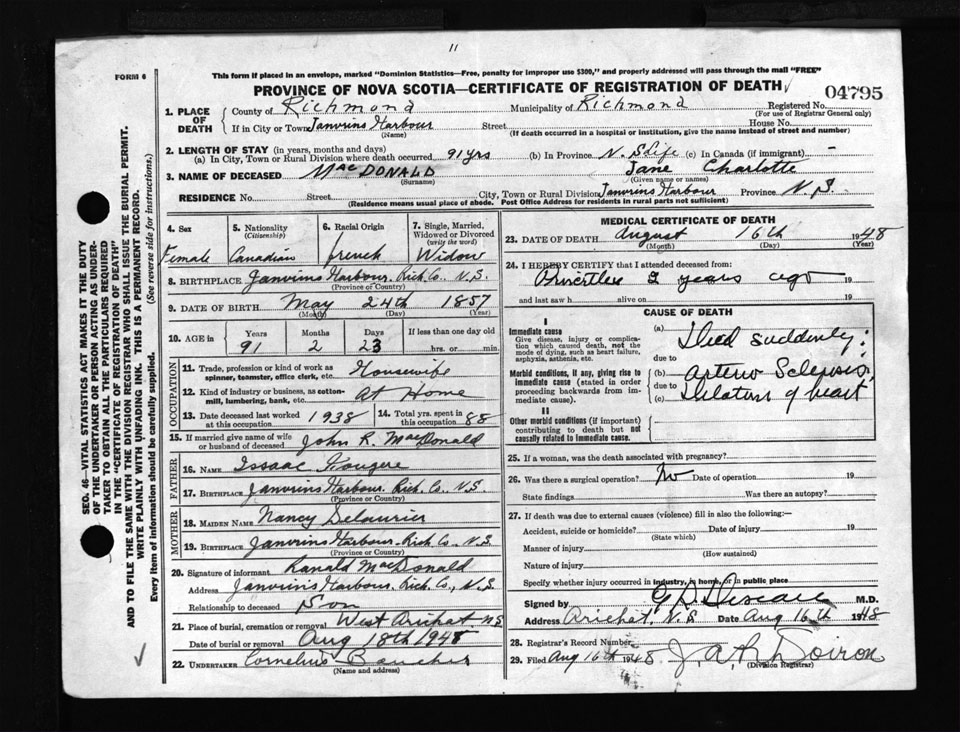 11
FORM 6
This form if placed in an envelope, marked "Dominion Statistics—Free, penalty for improper use $300," and properly addressed will pass through the mail "FREE"
PROVINCE OF NOVA SCOTIA—CERTIFICATE OF REGISTRATION OF DEATH
04795
1. PLACE OF DEATH
County of Richmond Municipality of Richmond Registered No.
(For use of Registrar General only)
If in City or Town Janvrins Harbour Street House No.
(Name) (If death occurred in a hospital or institution, give the name instead of street and number)
2. LENGTH OF STAY (in years, months and days)
(a) In City, Town or Rural Division where death occurred 91 yrs (b) In Province N. S Life (c) In Canada (if immigrant) -
3. NAME OF DECEASED MacDONALD Jane Charlotte
(Surname) (Given name or names)
RESIDENCE No. Street City, Town or Rural Division Janvrins Harbour Province N.S.
(Residence means usual place of abode. Post Office Address for residents in rural parts not sufficient)
4. Sex 5. Nationality (Citizenship) 6. Racial Origin 7. Single, Married, Widowed or Divorced (write the word)
Female Canadian french Widow
8. BIRTHPLACE Janvrins Harbour. Rich. Co. N.S.
(Province or Country)
9. DATE OF BIRTH May 24th 1857
(Month) (Day) (Year)
10. AGE in Years Months Days If less than one day old
91 2 23 hrs. or min.
OCCUPATION
11. Trade, profession or kind of work as spinner, teamster, office clerk, etc. Housewife
12. Kind of industry or business, as cotton-mill, lumbering, bank, etc. At Home
13. Date deceased last worked at this occupation 1938 14. Total yrs. spent in this occupation 88
15. If married give name of wife or husband of deceased John R. MacDonald
FATHER
16. NAME Issaac Fougere
17. BIRTHPLACE Janvrins Harbour. Rich. Co., N.S.
(Province or Country)
MOTHER
18. MAIDEN NAME Nancy Delaurier
19. BIRTHPLACE Janvrins Harbour. Rich Co., N.S.
(Province or Country)
20. Signature of informant Ranald MacDonald
Address Janvrins Harbour. Rich. Co., N.S
Relationship to deceased Son
21. Place of burial, cremation or removal West Arichat N.S
Date of burial or removal Aug 18th 1948
22. UNDERTAKER Cornelius
(Name and address)
MEDICAL CERTIFICATE OF DEATH
23. DATE OF DEATH August 16th 1948
(Month) (Day) (Year)
24. I HEREBY CERTIFY that I attended deceased from:
2 years ago 19
and last saw h alive on 19
CAUSE OF DEATH
I
Immediate cause
Give disease, injury or complication which caused death, not the mode of dying, such as heart failure, asphyxia, asthenia, etc.
(a) Died suddenly:
due to
Morbid conditions, if any, giving rise to immediate cause (stated in order proceeding backwards from immediate cause).
(b) Arterio Sclerosis,
due to
(c) Dilation of heart
II
Other morbid conditions (if important) contributing to death but not causally related to immediate cause.
25. If a woman, was the death associated with pregnancy?
26. Was there a surgical operation? No Date of operation 19
State findings Was there an autopsy?
27. If death was due to external causes (violence) fill in also the following:—
Accident, suicide or homicide? Date of injury 19
(State which)
Manner of injury
(How sustained)
Nature of injury
Specify whether injury occurred in industry, in home, or in public place
Signed by M.D.
Address Arichat, N.S Date Aug 16th 1948
28. Registrar's Record Number
29. Filed Aug 16th 1948 Doiron
(Division Registrar)
SEC. 46—VITAL STATISTICS ACT MAKES IT THE DUTY OF THE UNDERTAKER OR PERSON ACTING AS UNDERTAKER TO OBTAIN ALL THE PARTICULARS REQUIRED IN THE "CERTIFICATE OF REGISTRATION OF DEATH"
AND TO FILE THE SAME WITH THE DIVISION REGISTRAR WHO SHALL ISSUE THE BURIAL PERMIT.
WRITE PLAINLY WITH UNFADING INK. THIS IS A PERMANENT RECORD.
Every item of information should be carefully supplied. (See reverse side for instructions.)